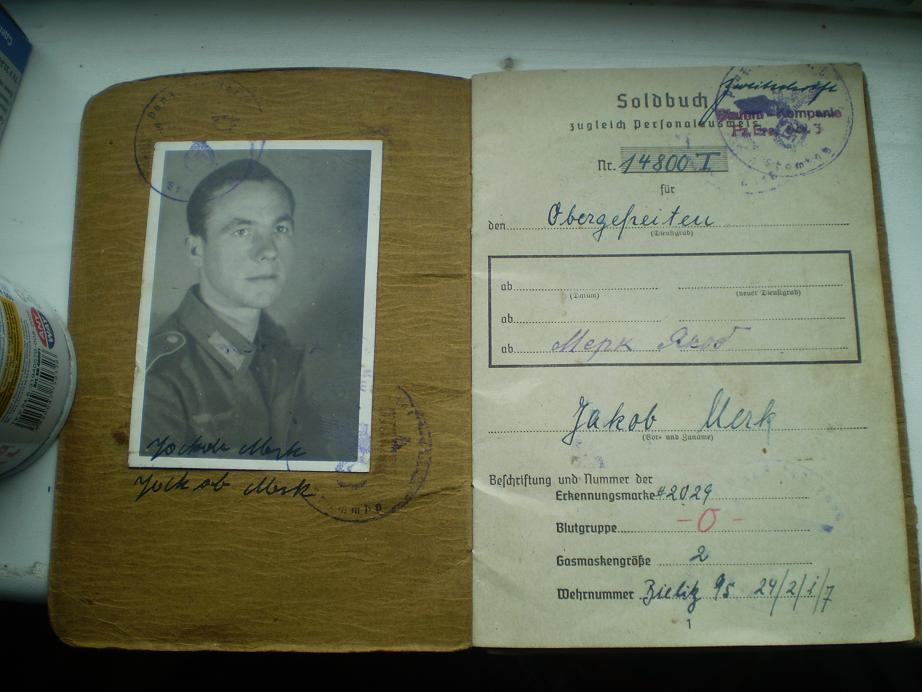 Jakob Merk
Jakob Merk
Soldbuch
zugleich Personalausweis
Zweitschrift
Stamm-Kompanie
Pz. Ers. Abt. 7
Nr. 14800 I
für
den Obergefreiten
(Dienstgrad)
ab
(Datum) (neuer Dienstgrad)
ab
ab Мерк Якоб
Jakob Merk
(Vor- und Zuname)
Beschriftung und Nummer der
Erkennungsmarke 42029
Blutgruppe -O-
Gasmaskengröße 2
Wehrnummer Bielitz 95 24/2/1/7
1